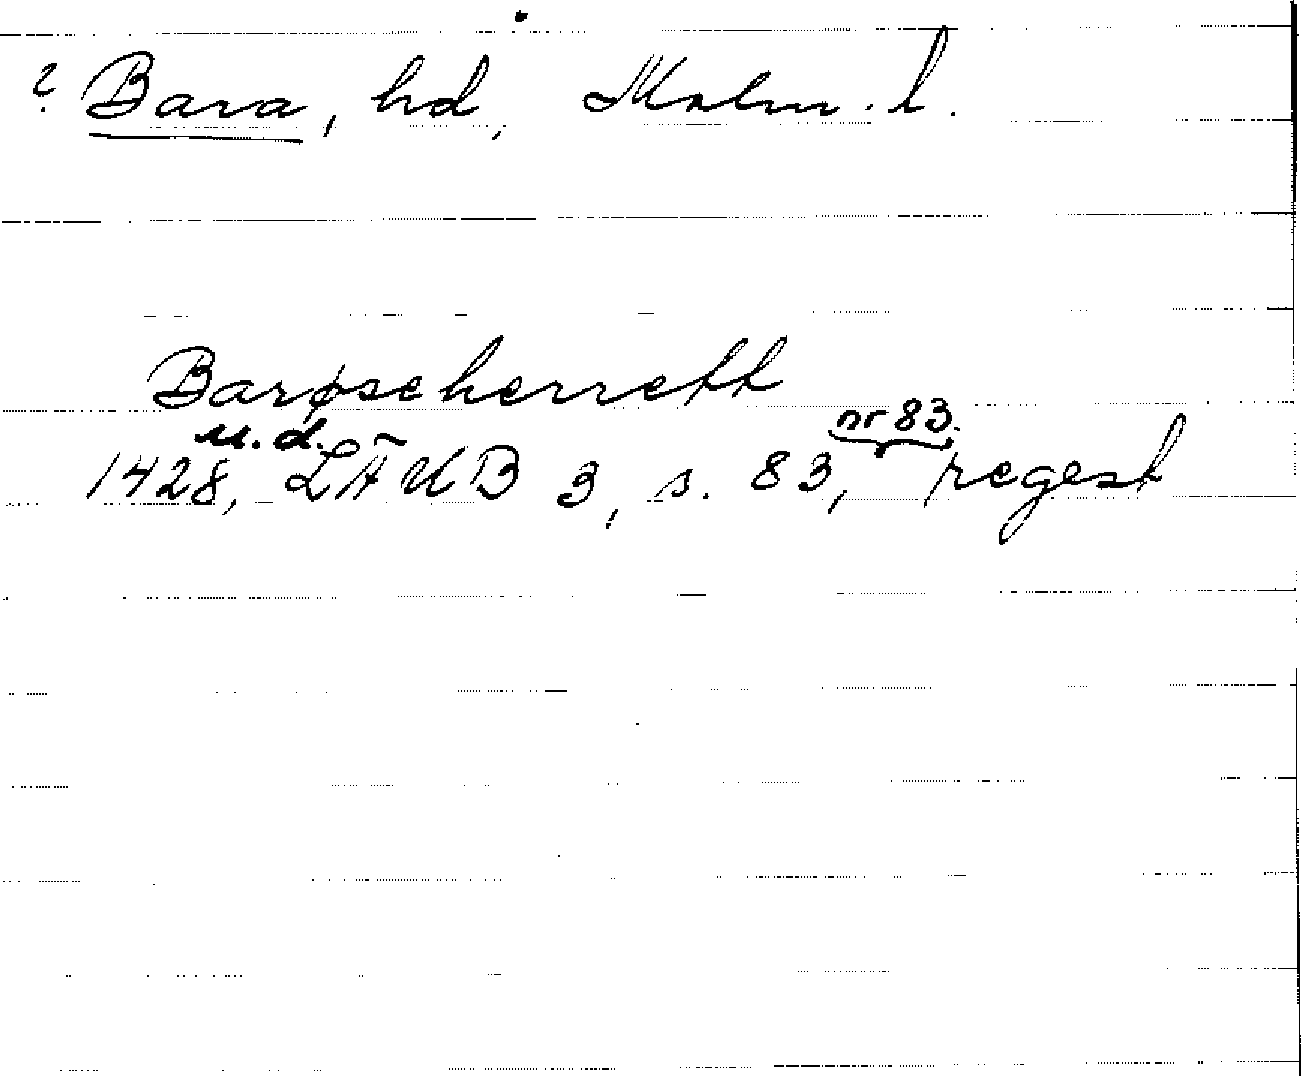 ? Bara, hd, Malm. l.
Barøseherrett
u.d. nr 83.
1428, LÄUB 3, s. 83, regest